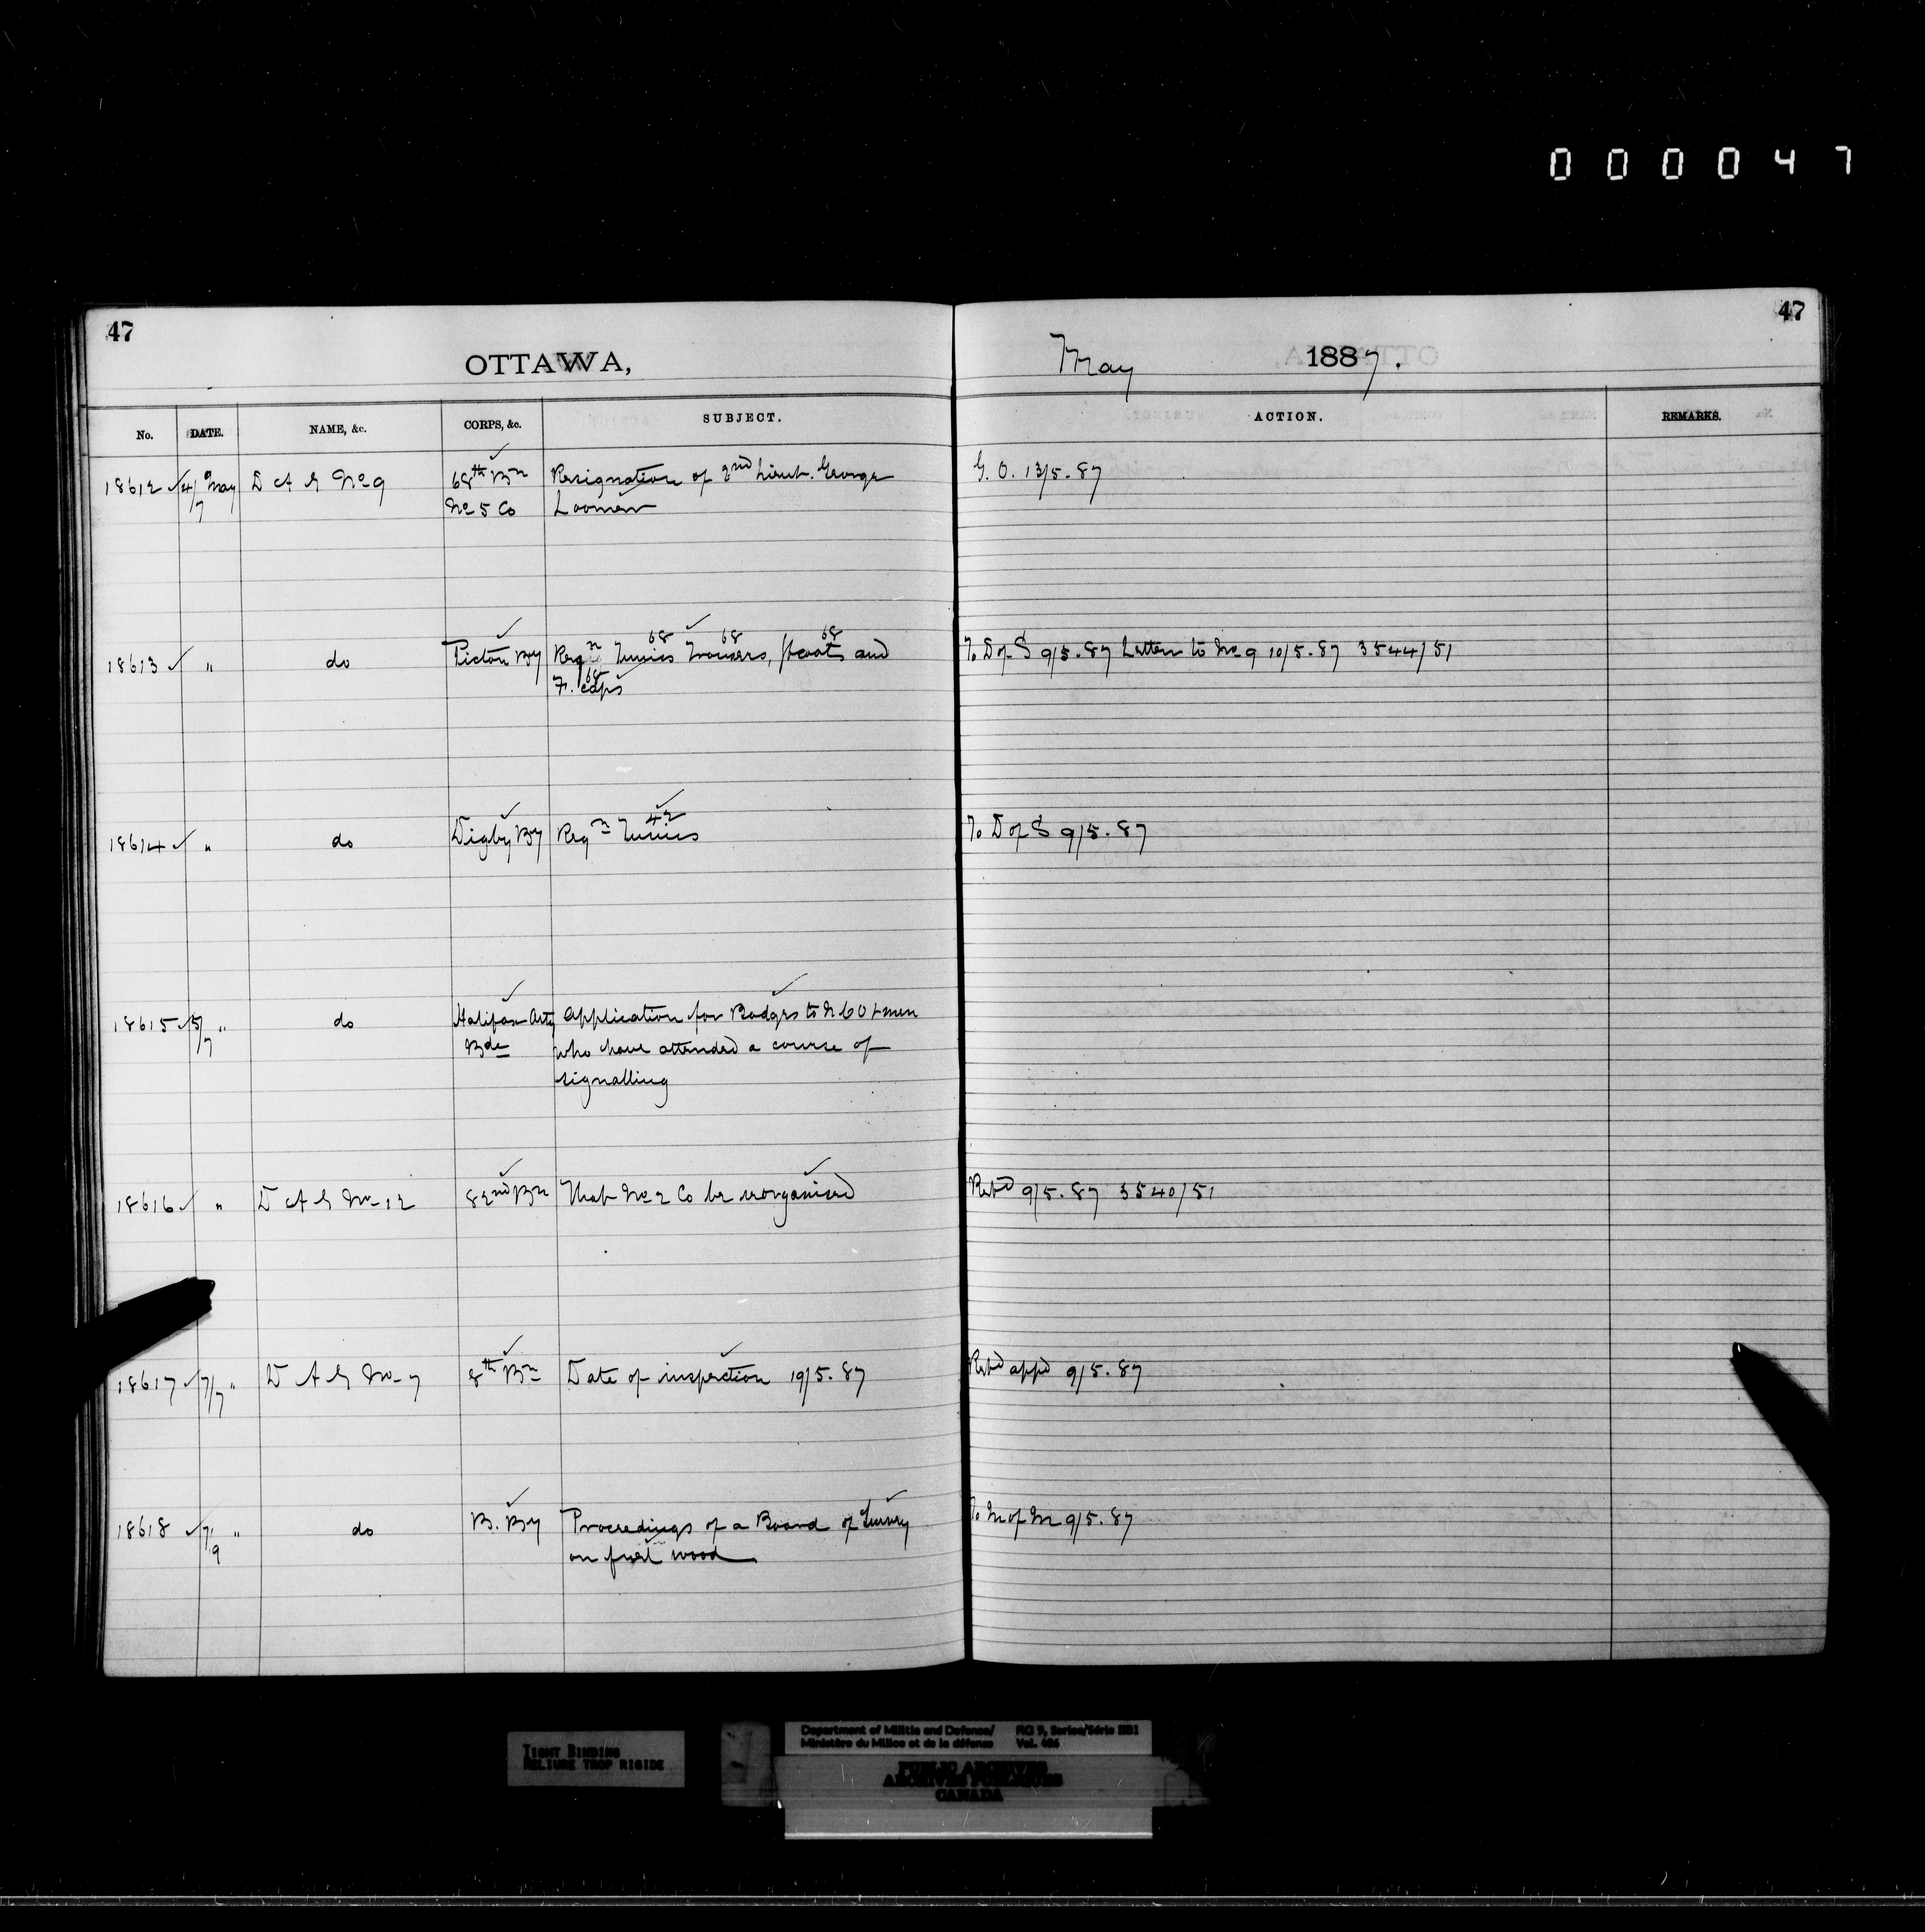 000047
47
47
OTTAWA,
May 1887.
No. DATE. NAME, &c. CORPS, &c. SUBJECT. ACTION. REMARKS.
18612 ✓ 4/7 May D A G No 9 68th Bn Resignation of 2nd Lieut. George G. O. 13/5.87
No 5 Co
18613 ✓ " do Pictou By Reqn Tunics 68 Trousers, 68 /coats 68 and To D of S 9/5.87 Letter to No 9 10/5.87 3544/51
F. caps 68
18614 ✓ " do Digby By Reqn Tunics 42 To D of S 9/5.87
18615 ✓ 5/7 " do Halifax Arty Application for Badges to N C O & men
Bde who have attended a course of
signalling
18616 ✓ " D A G No 12 82nd Bn That No 2 Co be reorganised Retd 9/5.87 3540/51
18617 ✓ 7/7 " D A G No 7 8th Bn Date of inspection 19/5.87 Retd appd 9/5.87
18618 ✓ 7/9 " do B. By Proceedings of a Board of Survey To M of M 9/5.87
on fuel wood
TIGHT BINDING
RELIURE TROP RIGIDE
Department of Militia and Defence/
Ministère du Milice et de la défense
RG 9, Series/Série IIB1
Vol. 406
PUBLIC ARCHIVES
ARCHIVES PUBLIQUES
CANADA